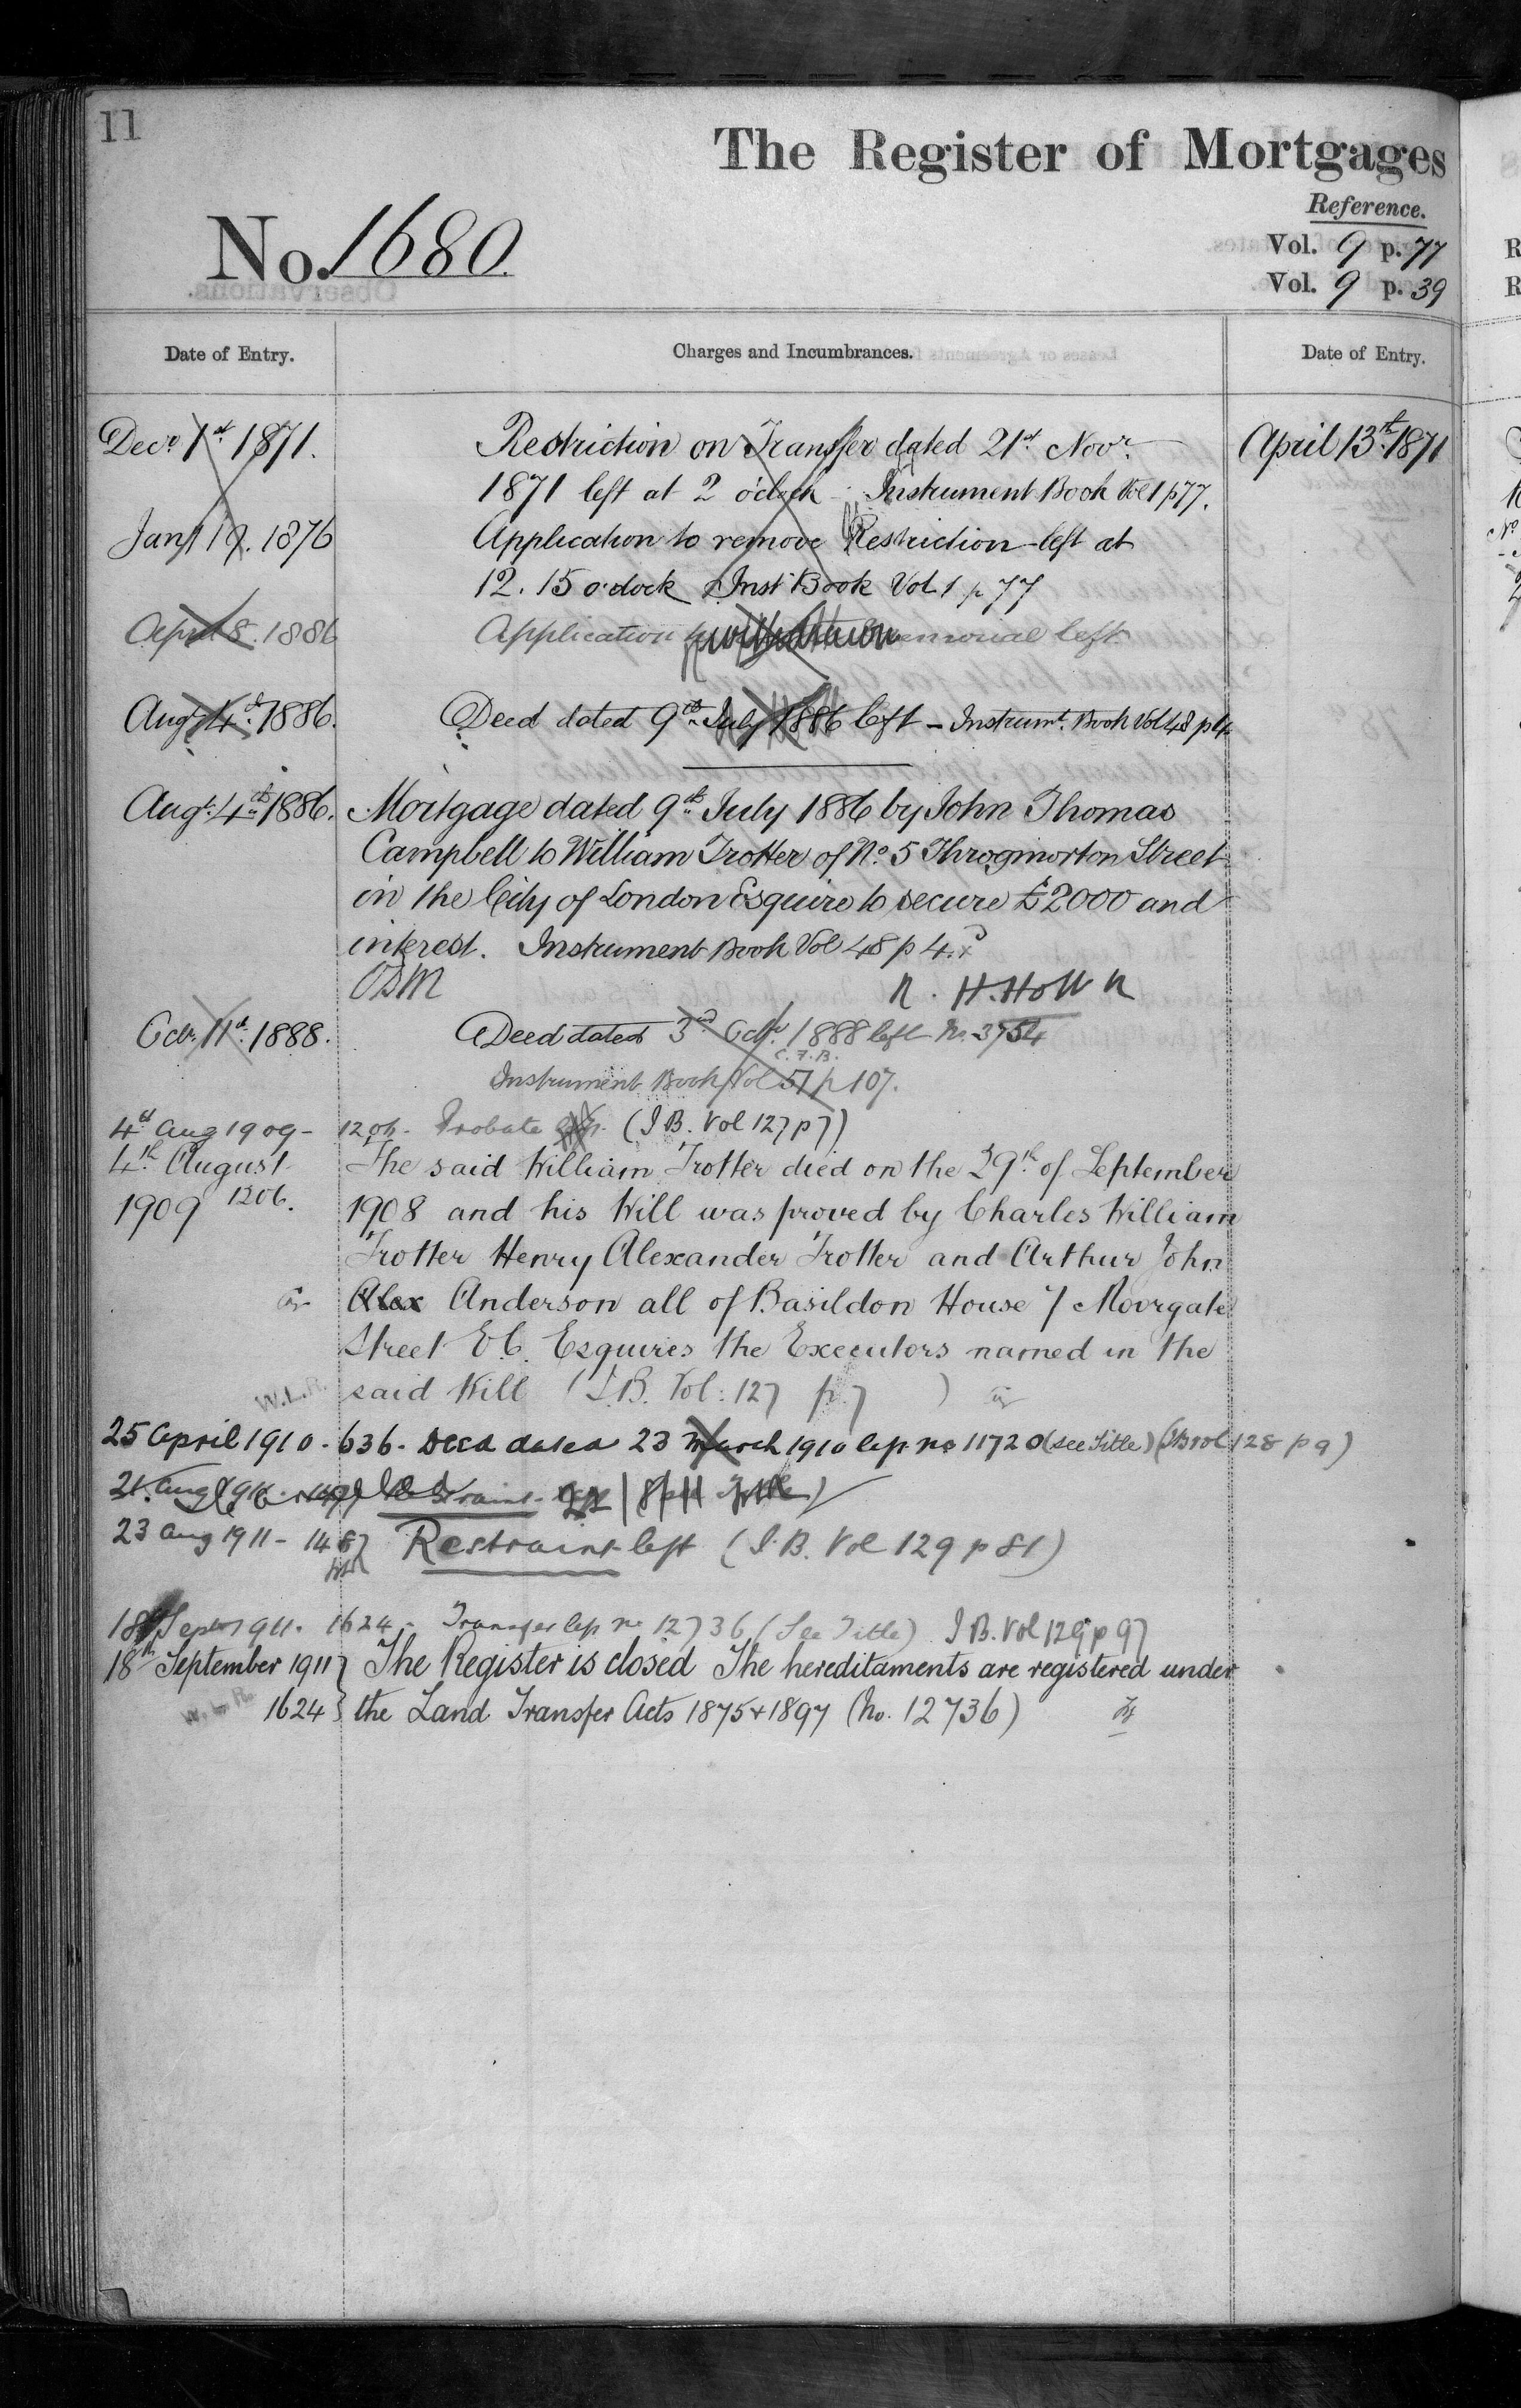 11
The Register of Mortgages
Reference.
No. 1680.
Vol. 9 p. 77
Vol. 9 p. 39
Date of Entry.
Charges and Incumbrances.
Date of Entry.
Decr. 1st 1871.
Restriction on Transfer dated 21st Novr.
April 13th 1871
1871 left at 2 o'clock Instrument Book Vol 1 p 77.
Jany 19. 1876
Application to remove Restriction left at
12.15 o'clock Inst Book Vol. 1 p 77
April 8. 1886
Application withdrawn memorial left
Augt 4th 1886.
Deed dated 9th July 1886 left - Instrumt. Book Vol 48 p 4.
Augt. 4th 1886.
Mortgage dated 9th July 1886 by John Thomas
Campbell to William Trotter of No. 5 Throgmorton Street
in the City of London Esquire to secure £2000 and
interest. Instrument Book Vol 48 p 4.
R. H. Holt
Octr. 11th 1888.
Deed dated 3rd Octr. 1888 left No. 3754
C.F.B.
Instrument Book Vol 51 p 107.
4th Aug 1909 - 1206. Probate (I B. Vol 127 p 7)
4th August
1909 1206.
The said William Trotter died on the 29th of September
1908 and his Will was proved by Charles William
Trotter Henry Alexander Trotter and Arthur John
Alex Anderson all of Basildon House 7 Moorgate
Street E.C. Esquires the Executors named in the
W.L.R.
said Will (I.B. Vol: 127 p. 7 )
25 April 1910 - 636 - Deed dated 23 March 1910 left no 11720 (see Title) (IB vol 128 p 9)
23 Aug 1911 - 1487 Restraint left (I.B. Vol 129 p 81)
18 Sept 1911. 1624 - Transfer left no 12736 (See Title) I B. Vol 129 p 97
18th September 1911 } The Register is closed The hereditaments are registered under
W.L.R.
1624 } the Land Transfer Acts 1875 & 1897 (No. 12736)